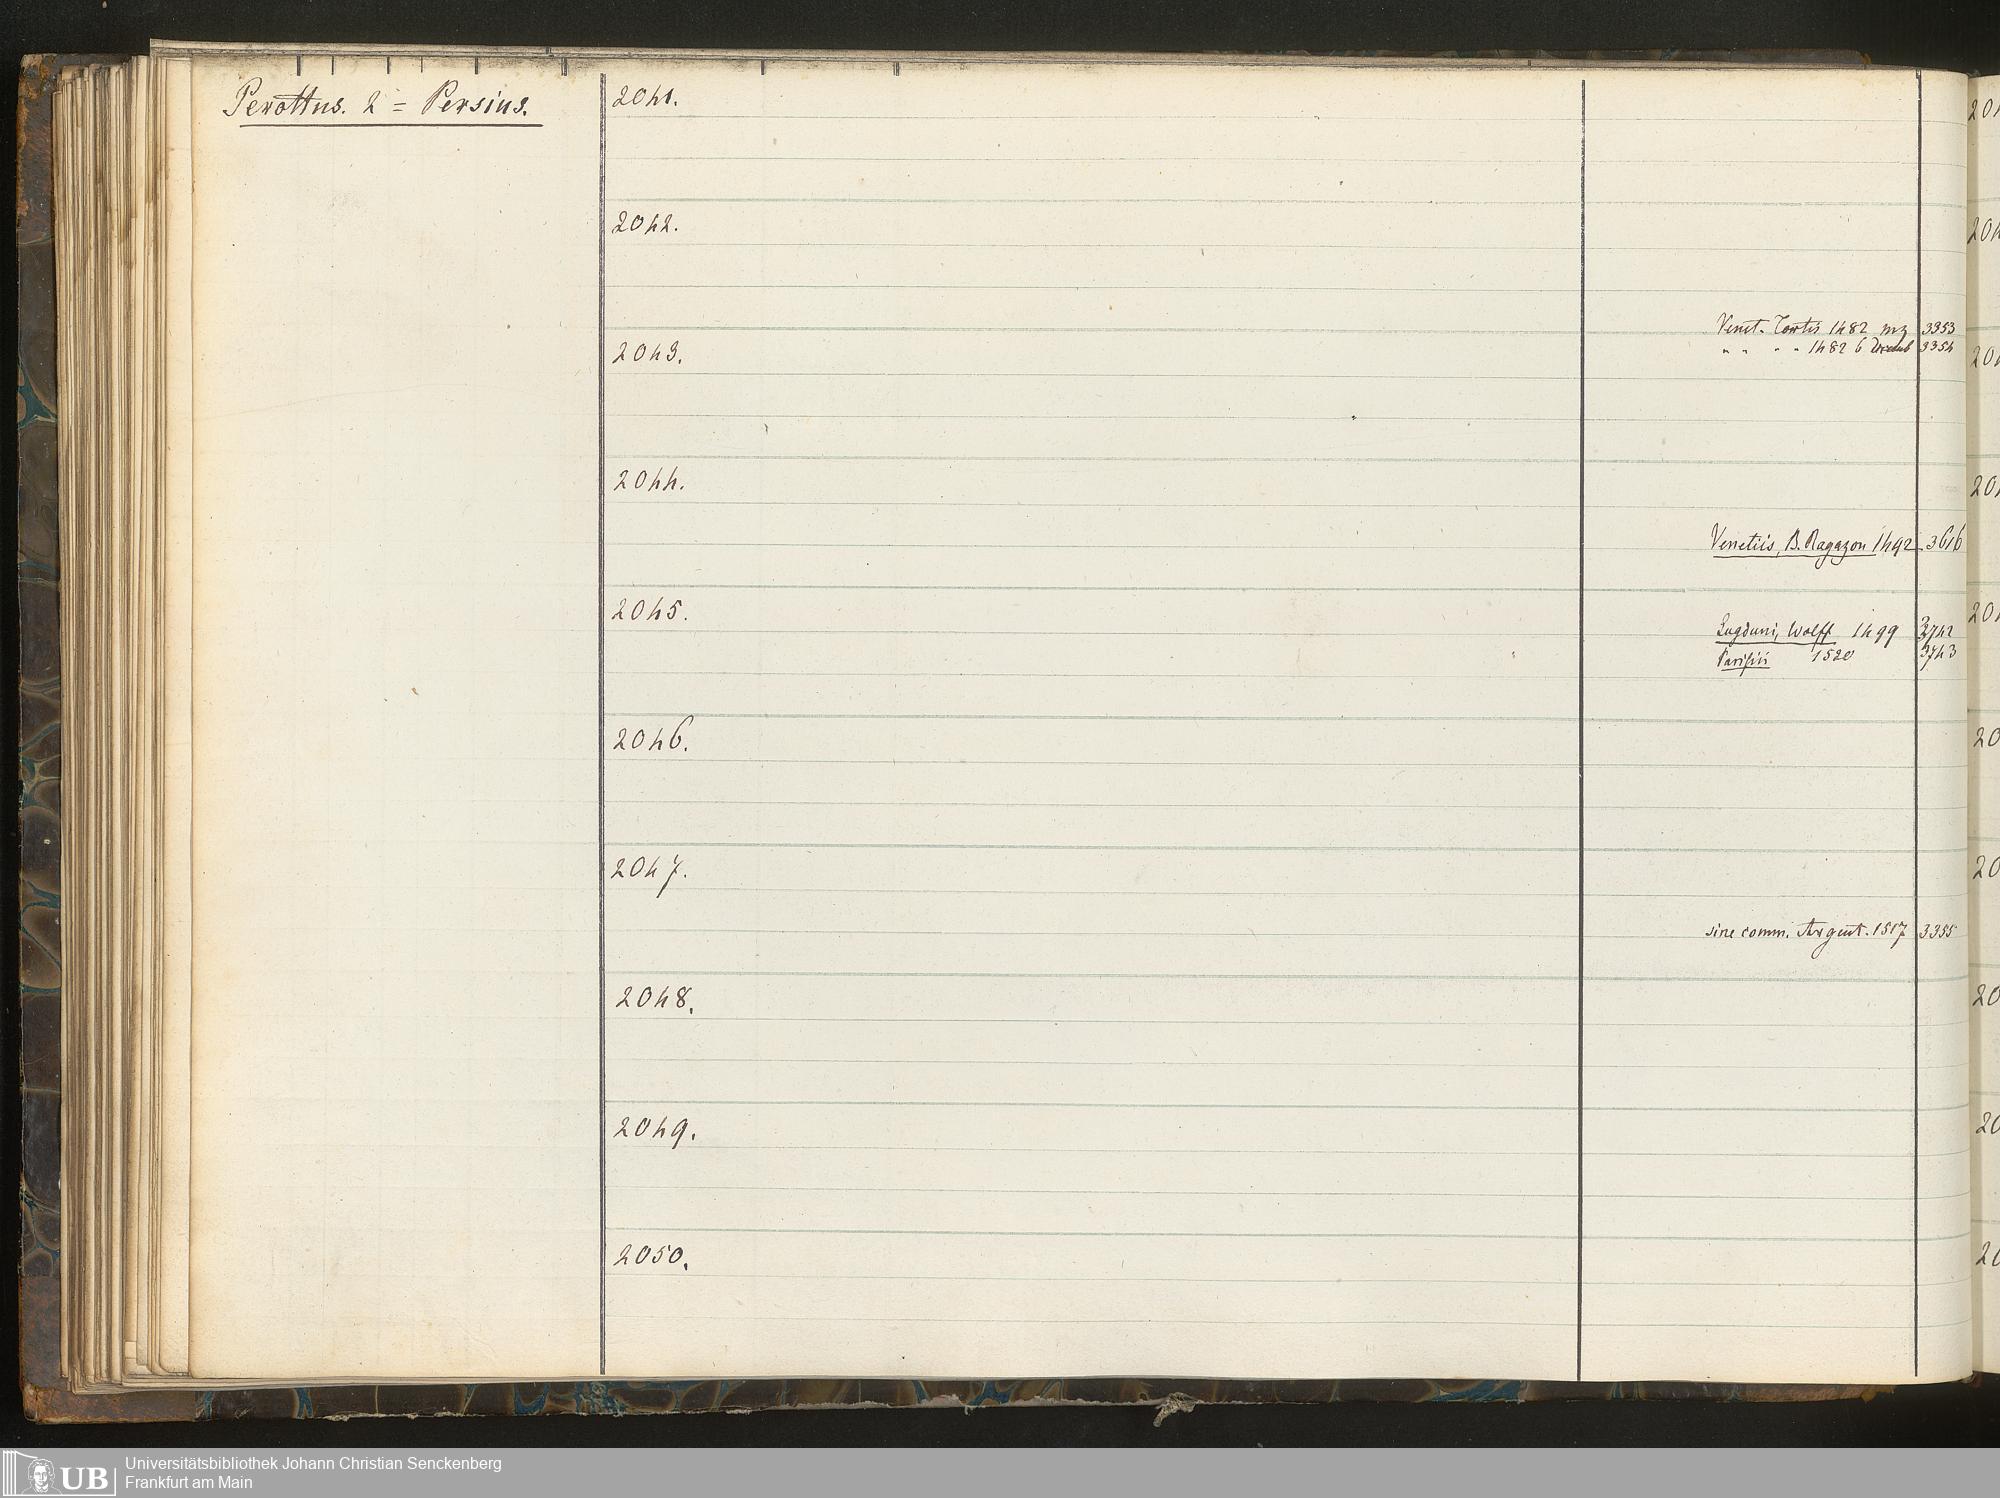 Perottus. 2 = Persius.
2041.
2042.
Venet. Tortis 1482 mz 3353
" " " " 1482 6 Decemb 3354
2043.
2044.
Venetiis, B. Ragazon 1492 3616
2045.
Lugduni, Wolff 1499 3742
Parisiis 1520 3743
2046.
2047.
sine comm. Argent. 1517 3355
2048.
2049.
2050.
UB
Universitätsbibliothek Johann Christian Senckenberg
Frankfurt am Main